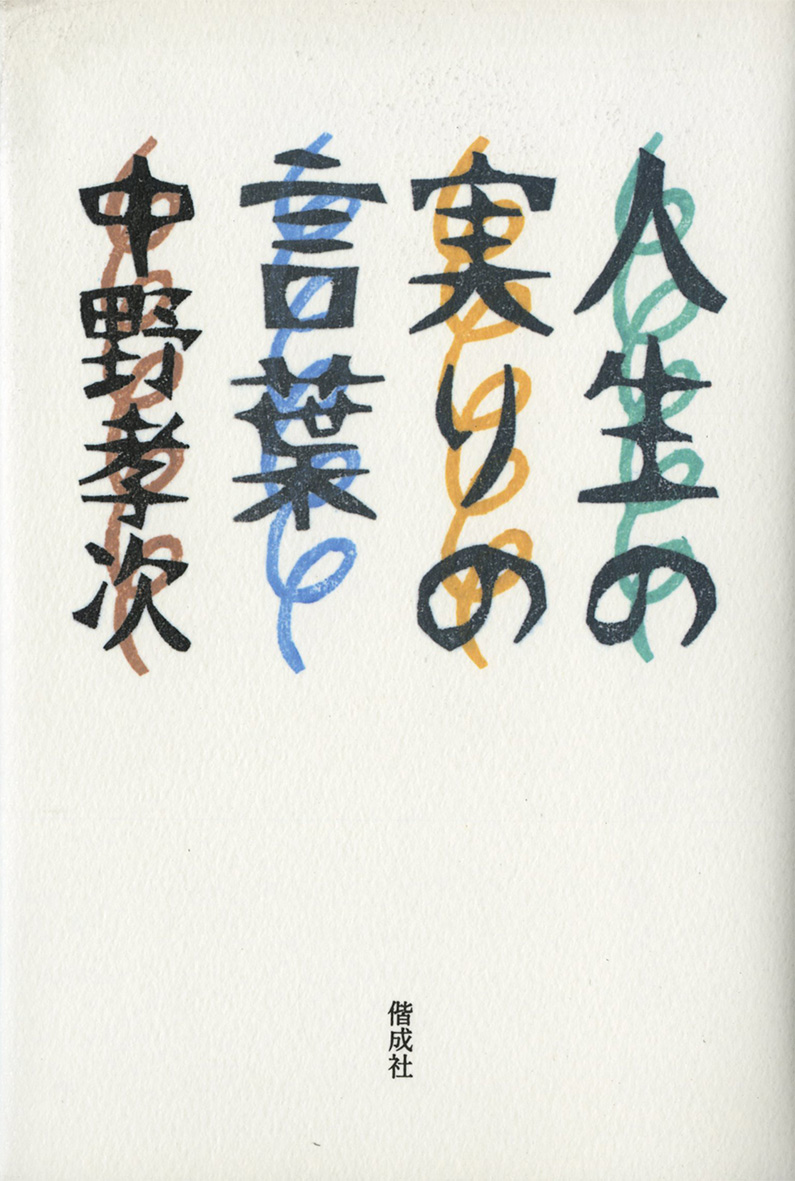 人生の
実りの
言葉
中野孝次
偕成社